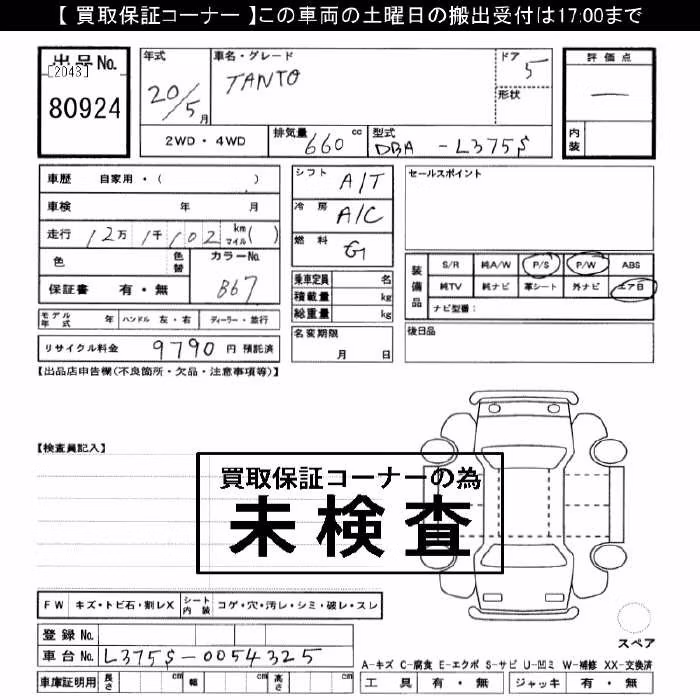 【 買取保証コーナー 】この車両の土曜日の搬出受付は17:00まで
出品No.
[2043]
80924
年式
20/5月
車名・グレード
TANTO
ドア
5
形状
評価点
—
内装
2WD・4WD
排気量
660 cc
型式
DBA - L375S
車歴 自家用・( )
車検 年 月
走行 12万 1千 102 km マイル ( )
色
色替
カラーNo.
B67
保証書 有・無
モデル年式 年 ハンドル 左・右 ディーラー・並行
リサイクル料金 9790 円 預託済
シフト A/T
冷房 A/C
燃料 G
乗車定員 名
積載量 kg
総重量 kg
名変期限
月 日
セールスポイント
装備品
S/R 純A/W P/S P/W ABS
純TV 純ナビ 革シート 外ナビ エアB
ナビ型番:
後日品
【出品店申告欄(不良箇所・欠品・注意事項等)】
【検査員記入】
買取保証コーナーの為
未検査
FW キズ・トビ石・割レX シート内装 コゲ・穴・汚レ・シミ・破レ・スレ
登録No.
車台No. L375S-0054325
車庫証明用 長さ cm 幅 cm 高さ cm
スペア
A-キズ C-腐食 E-エクボ S-サビ U-凹ミ W-補修 XX-交換済
工具 有・無 ジャッキ 有・無